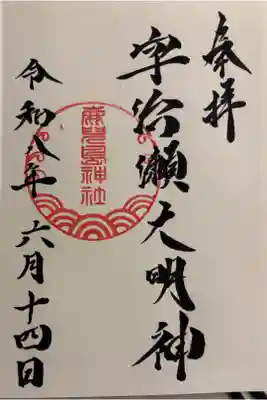 奉拝
宇治瀬大明神
鹿児島神社
令和八年 六月十四日